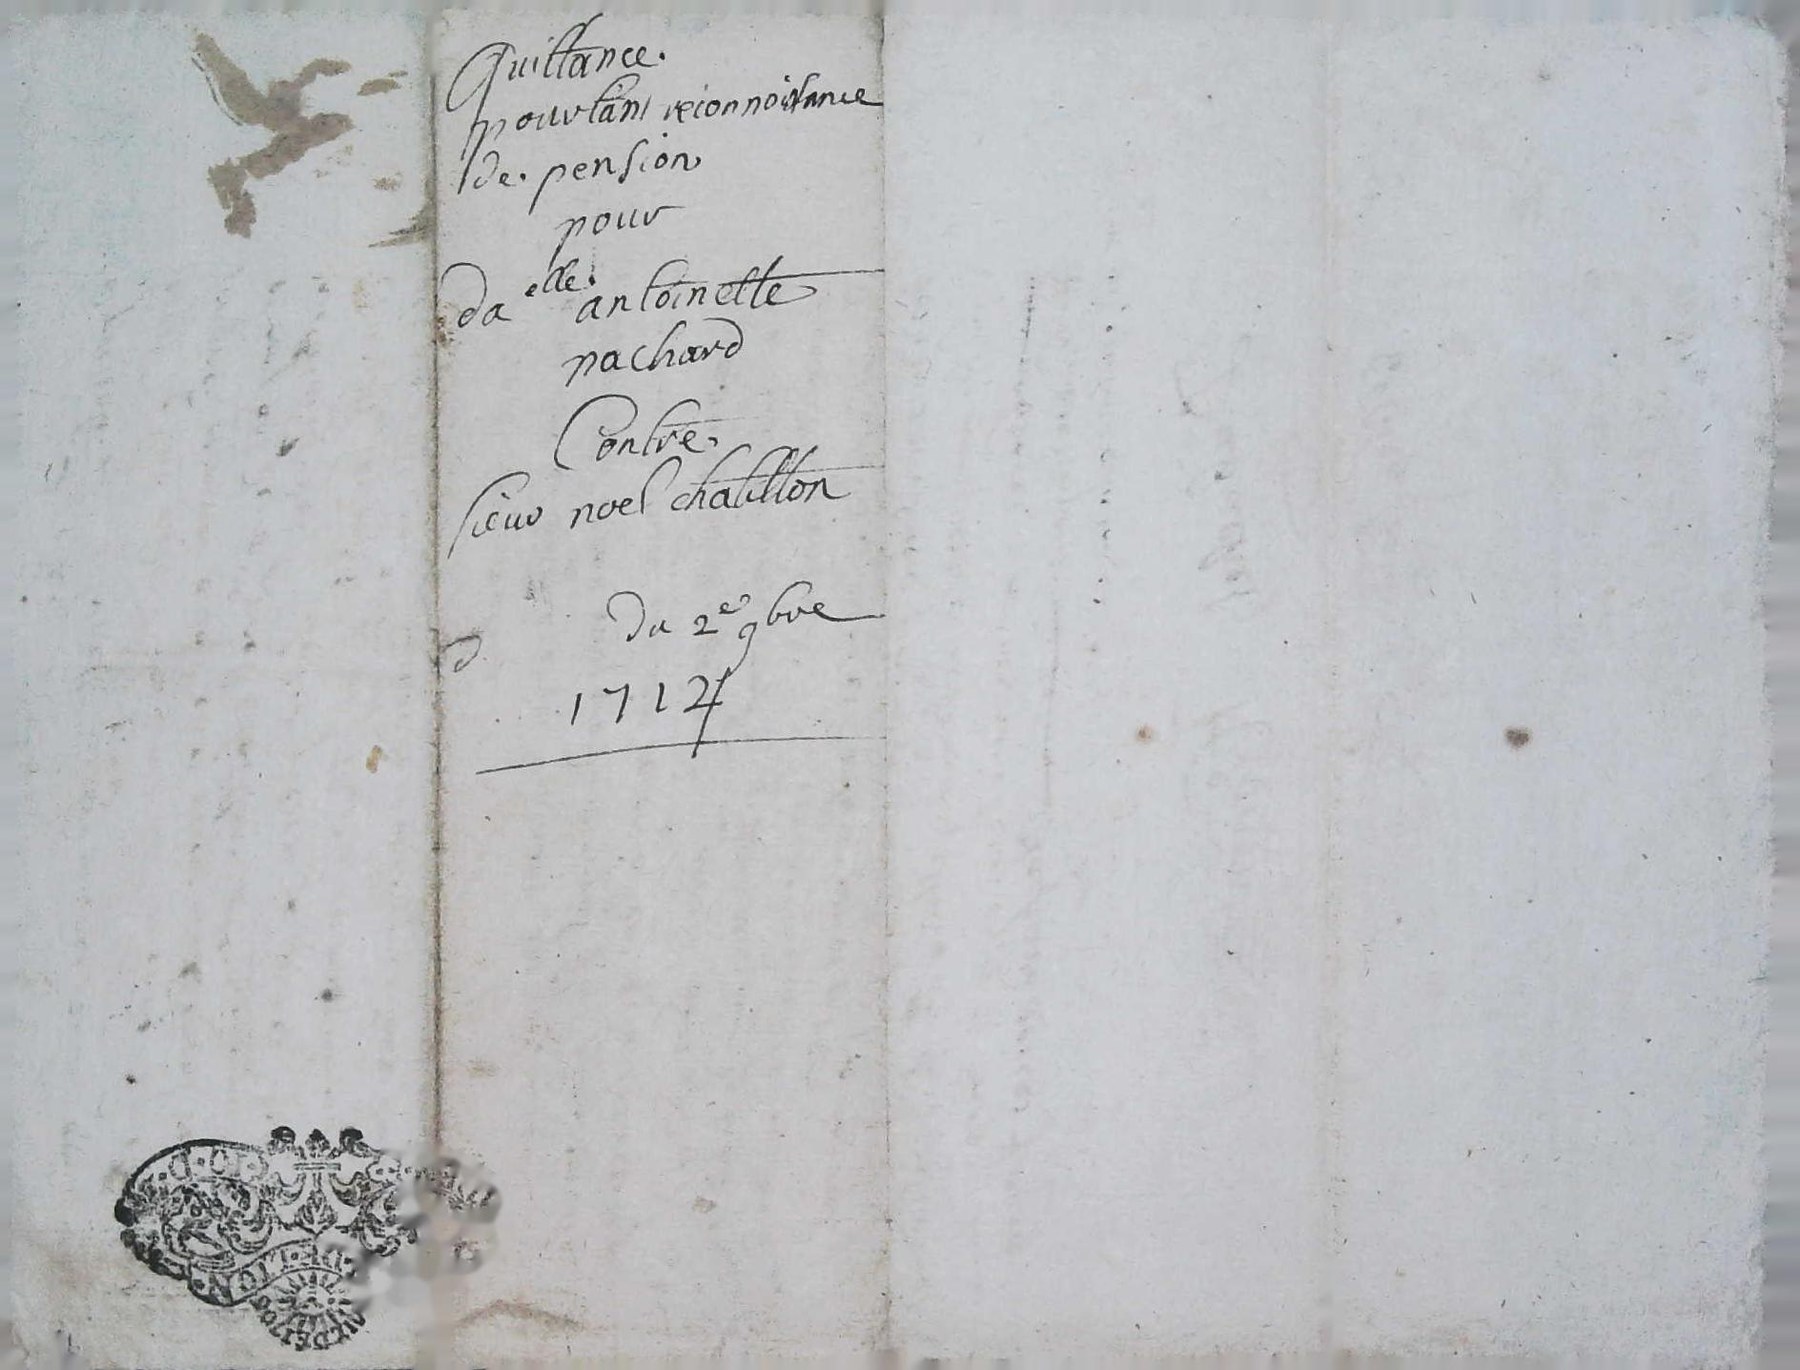 Quittance.
pourtant reconnoissance
de. pension
pour
da elle. antoinette
pachard
Contre.
sieur noel chatillon
du 2e 9bre
1712